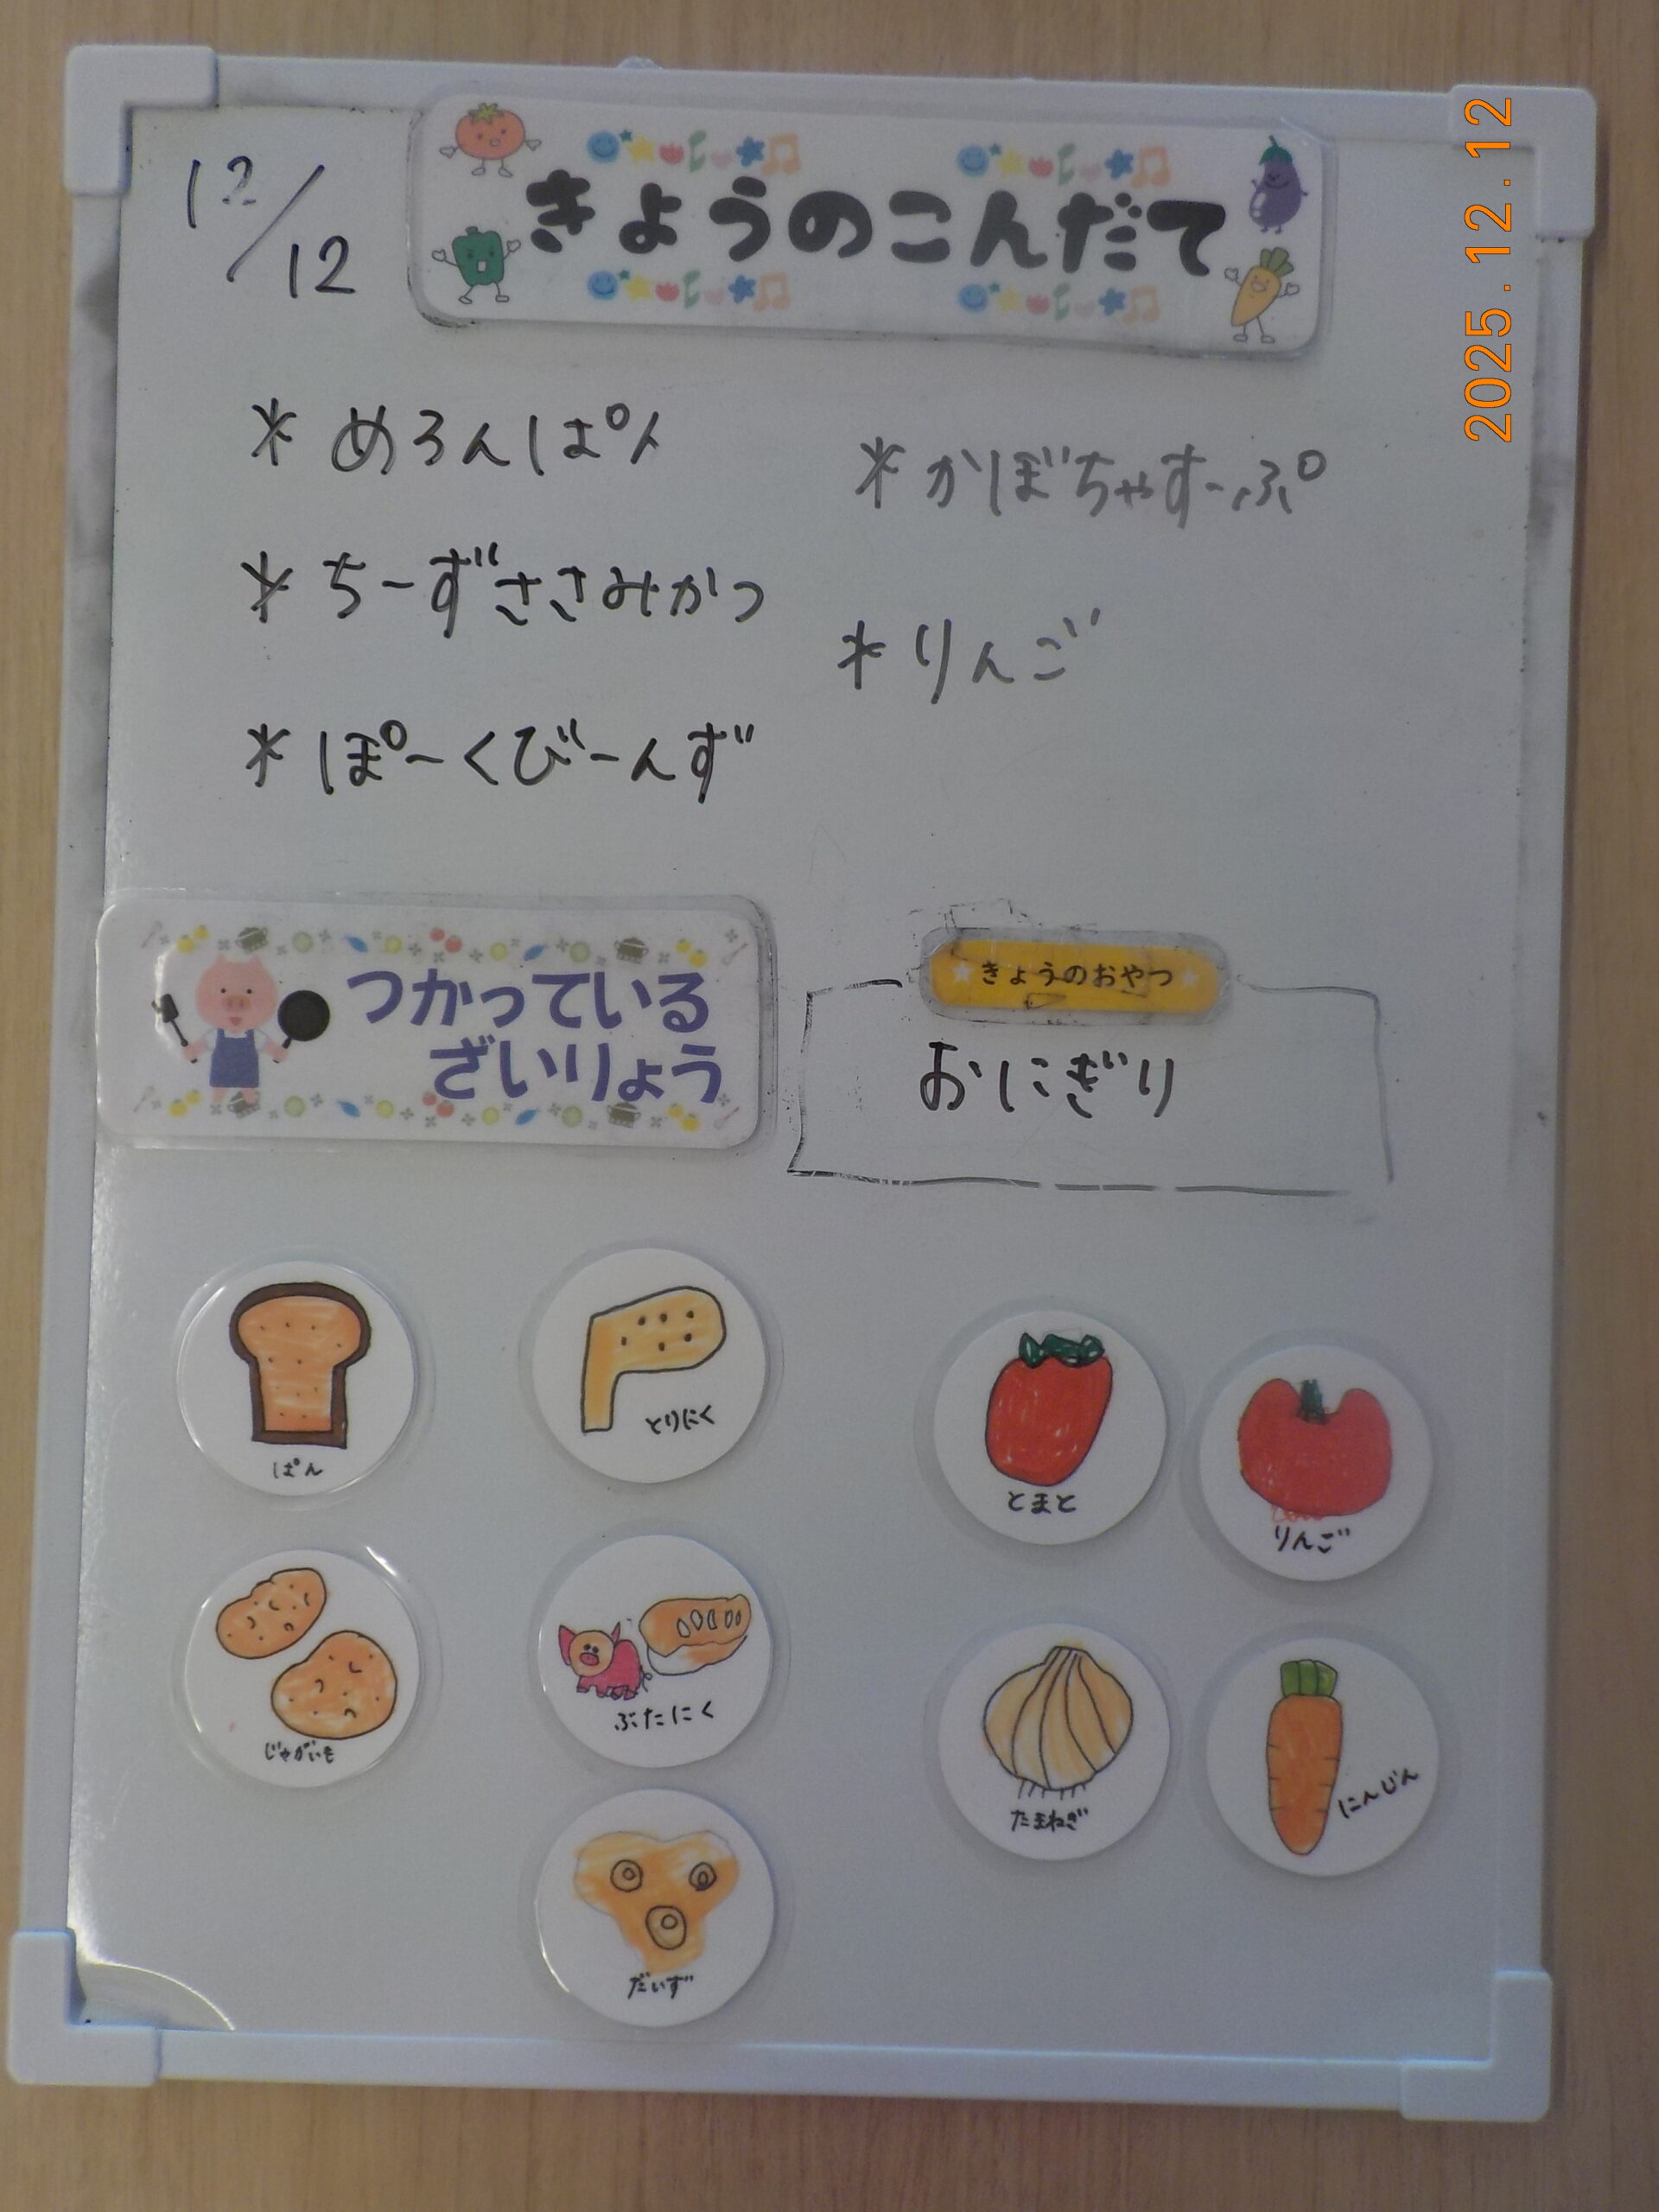 12/12
きょうのこんだて
2025.12.12
* めろんぱん
* ちーずささみかつ
* ぽーくびーんず
* かぼちゃすーぷ
* りんご
つかっている
ざいりょう
きょうのおやつ
おにぎり
ぱん
とりにく
とまと
りんご
じゃがいも
ぶたにく
たまねぎ
にんじん
だいず